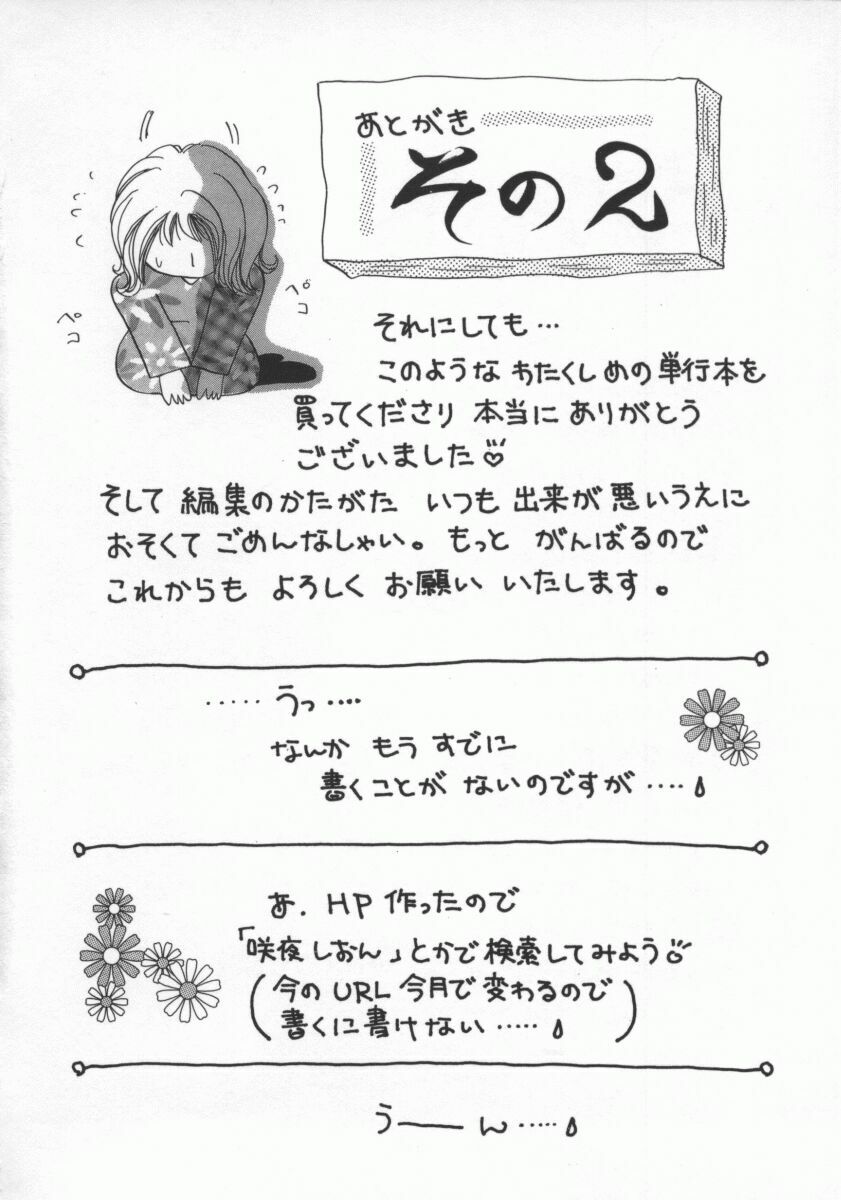 あとがき
その2
ペコ
ペコ
それにしても…
このような わたくしめの単行本を
買ってくださり 本当に ありがとう
ございました♡
そして 編集のかたがた いつも 出来が 悪いうえに
おそくて ごめんなしゃい。もっと がんばるので
これからも よろしく お願い いたします。
‥‥‥うっ‥‥
なんか もう すでに
書くことが ないのですが‥‥
あ. HP 作ったので
「咲夜しおん」とかで検索してみよう♡
(今の URL 今月で 変わるので
書くに書けない‥‥‥)
うーーん‥‥‥